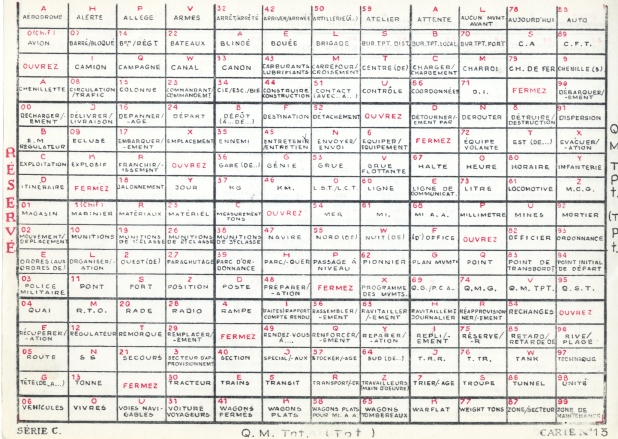 A H P V 32 42 50 59 A L 78 85
AÉRODROME ALERTE ALLÉGÉ ARMES ARRÊT/ARRÊTÉ ARRIVER/ARRIVÉE ARTILLERIE(A..) ATELIER ATTENTE AUCUN MVMT AVANT AUJOURD'HUI AUTO
AVION BARRÉ/BLOQUÉ BIE/RÉGT BATEAUX BLINDÉ BOUÉE BRIGADE BUR.TPT.DIST. BUR.TPT.LOCAL BUR.TPT.PORT C.A C.F.T.
OUVREZ CAMION CAMPAGNE CANAL CANON CARBURANTS LUBRIFIANTS CARREFOUR/CROISEMENT CENTRE (DE) CHARGER/CHARGEMENT CHARROI CH. DE FER CHENILLE(S)
CHENILLETTE CIRCULATION/TRAFIC COLONNE COMMANDANT/COMMANDEMENT CIE/ESC./BIE CONSTRUIRE CONSTRUCTION CONTACT (AVEC...À..) CONTRÔLE COORDONNÉES D.I. FERMEZ DÉBARQUER/-EMENT
DÉCHARGER/-EMENT DÉLIVRER/LIVRAISON DÉPANNER/-AGE DÉPART DÉPÔT (À..DE...) DESTINATION DÉTACHEMENT OUVREZ DÉTOURNER/-EMENT PAR DÉROUTER DÉTRUIRE/DESTRUCTION DISPERSION
E.M RÉGULATEUR ÉCLUSE EMBARQUER/-EMENT EMPLACEMENT ENNEMI ENTRETENIR/ENTRETIEN ENVOYER/ENVOI ÉQUIPER/ÉQUIPEMENT FERMEZ ÉQUIPE VOLANTE EST (DE...) ÉVACUER/-ATION
EXPLOITATION EXPLOSIF FRANCHIR/-ISSEMENT OUVREZ GARE (DE..) GÉNIE GRUE GRUE FLOTTANTE HALTE HEURE HORAIRE INFANTERIE
ITINÉRAIRE FERMEZ JALONNEMENT JOUR KG KM. L.S.T./L.C.T. LIGNE LIGNE DE COMMUNICAT. LITRE LOCOMOTIVE M.C.G.
MAGASIN MARINIER MATÉRIAUX MATÉRIEL MEASUREMENT TONS OUVREZ MER MI. MI A.A. MILLIMÈTRE MINES MORTIER
MOUVEMENT/DÉPLACEMENT MUNITIONS MUNITIONS DE 1e CLASSE MUNITIONS DE 2e CLASSE MUNITIONS DE 3e CLASSE NAVIRE NORD (DE) NUIT (DE) (D')OFFICE OUVREZ OFFICIER ORDONNANCE
ORDRES (AUX ORDRES DE) ORGANISER/-ATION OUEST (DE) PARACHUTAGE PARC D'ORDONNANCE PARC/-QUER PASSAGE À NIVEAU PIONNIER PLAN MVMTS POINT POINT DE TRANSBORDT POINT INITIAL DE DÉPART
POLICE MILITAIRE PONT PORT POSITION POSTE PRÉPARER/-ATION FERMEZ PROGRAMME DES MVMTS. Q.G./P.C.A. Q.M.G. Q.M. TPT. Q.S.T.
QUAI R.T.O. RADE RADIO RAMPE RAPPORT COMPTE RENDU RASSEMBLER/-EMENT RAVITAILLER/-EMENT RAVITAILLEMENT JOURNALIER RÉAPPROVISIONNER/-MENT RECHANGES OUVREZ
RÉCUPÉRER/-ATION RÉGULATEUR REMORQUE REMPLACER/-EMENT FERMEZ RENDEZ-VOUS À... RENFORCER/-EMENT RÉPARER/-ATION REPLI/-EMENT RÉSERVE/-R RETARD/RETARDÉ DE RIVE/PLAGE
ROUTE S S SECOURS SECTEUR D'APPROVISIONNEMENT SECTION SPECIAL/-AUX STOCKER/-AGE SUD (DE..) T.R.R. T.TR. TANK TECHNIQUE
TÊTE (DE,À...) TONNE FERMEZ TRACTEUR TRAINS TRANSIT TRANSPORT/-ER TRAVAILLEURS MAIN D'OEUVRE TRIER/-AGE TROUPE TUNNEL UNITÉ
VÉHICULES VIVRES VOIES NAVIGABLES VOITURE VOYAGEURS WAGONS FERMÉS WAGONS PLATS WAGONS PLATS POUR MI. A A. WAGONS TOMBEREAUX WARFLAT WEIGHT TONS ZONE/SECTEUR ZONE DE MAINTENANCE
RÉSERVÉ
Q.M. Tpt. (Tpt.
SÉRIE C. Q.M. Tpt. (Tpt) CARTE N°13